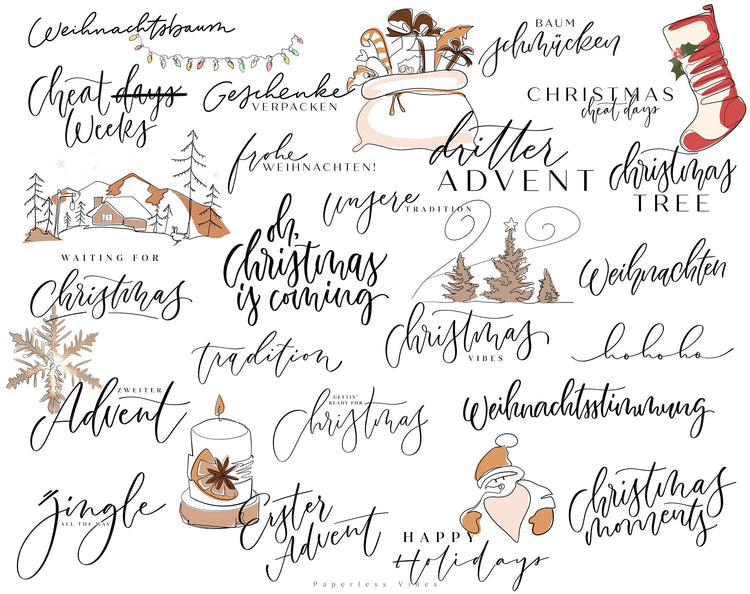 Weihnachtsbaum
BAUM
schmücken
Cheat days
Weeks
Geschenke
VERPACKEN
CHRISTMAS
cheat days
frohe
WEIHNACHTEN!
dritter
ADVENT
christmas
TREE
unsere
TRADITION
oh,
Christmas
is coming
WAITING FOR
Christmas
Weihnachten
Christmas
VIBES
tradition
hohoho
ZWEITER
Advent
GETTIN'
READY FOR
Christmas
Weihnachtsstimmung
Jingle
ALL THE WAY
Erster
Advent
HAPPY
Holidays
Christmas
moments
Paperless Vibes